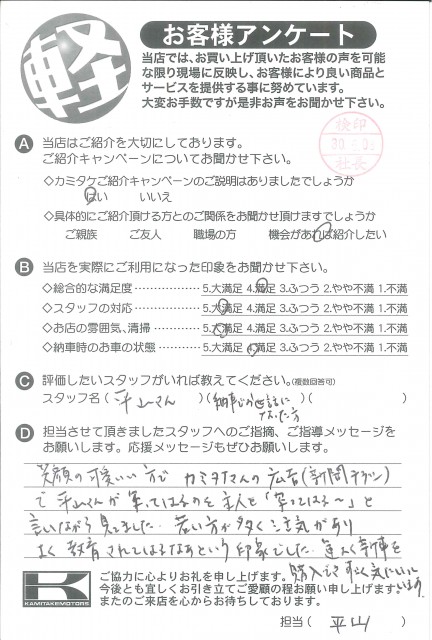 軽
お客様アンケート
当店では、お買い上げ頂いたお客様の声を可能
な限り現場に反映し、お客様により良い商品と
サービスを提供する事に努めています。
大変お手数ですが是非お声をお聞かせ下さい。
検印
社長
A 当店はご紹介を大切にしております。
ご紹介キャンペーンについてお聞かせ下さい。
◇カミタケご紹介キャンペーンのご説明はありましたでしょうか
はい いいえ
◇具体的にご紹介頂ける方とのご関係をお聞かせ頂けますでしょうか
ご親族 ご友人 職場の方 機会があれば紹介したい
B 当店を実際にご利用になった印象をお聞かせ下さい。
◇総合的な満足度 ‥‥‥‥‥‥ 5.大満足 4.満足 3.ふつう 2.やや不満 1.不満
◇スタッフの対応 ‥‥‥‥‥‥ 5.大満足 4.満足 3.ふつう 2.やや不満 1.不満
◇お店の雰囲気、清掃 ‥‥‥‥ 5.大満足 4.満足 3.ふつう 2.やや不満 1.不満
◇納車時のお車の状態 ‥‥‥‥ 5.大満足 4.満足 3.ふつう 2.やや不満 1.不満
C 評価したいスタッフがいれば教えてください。(複数回答可)
スタッフ名( 平山さん )(納車でお世話に
なった方 )( )
D 担当させて頂きましたスタッフへのご指摘、ご指導メッセージを
お願いします。応援メッセージもぜひお願いします。
笑顔の可愛いい方で カミタケさんの広告(新聞チラシ)
で平山さんが笑ってはるのを主人と「笑ってはる〜」と
言いながら見てました。若い方が多く活気があり
よく教育されてはるなぁという印象でした。
購入でき すごく気に入って
います。
KAMITAKEMOTORS
ご協力に心よりお礼を申し上げます。
今後とも宜しくお引き立てご愛顧の程お願い申し上げます。
またのご来店を心からお待ちしております。
担当( 平山 )